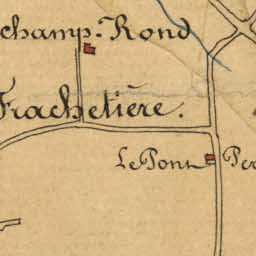 champ. Rond
Frachetière.
Le Pont
Per